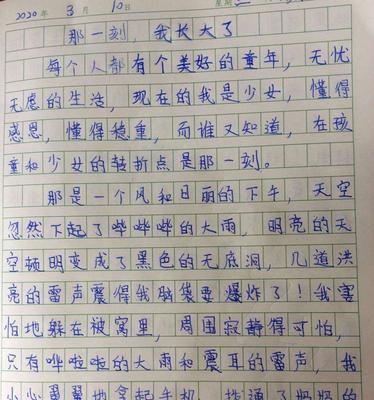 2020年 3月 10日 星期
那一刻，我长大了
每个人都有个美好的童年，无忧
无虑的生活，现在的我是少女，懂得
感恩，懂得稳重，而谁又知道，在孩
童和少女的转折点是那一刻。
那是一个风和日丽的下午，天空
忽然下起了哗哗哗的大雨，明亮的天
空顿明变成了黑色的无底洞，几道洪
亮的雷声震得我脑袋要爆炸了！我害
怕地躲在被窝里，周围寂静得可怕，
只有哗啦啦的大雨和震耳的雷声，我
小心翼翼地拿起手机，拨通了妈妈的